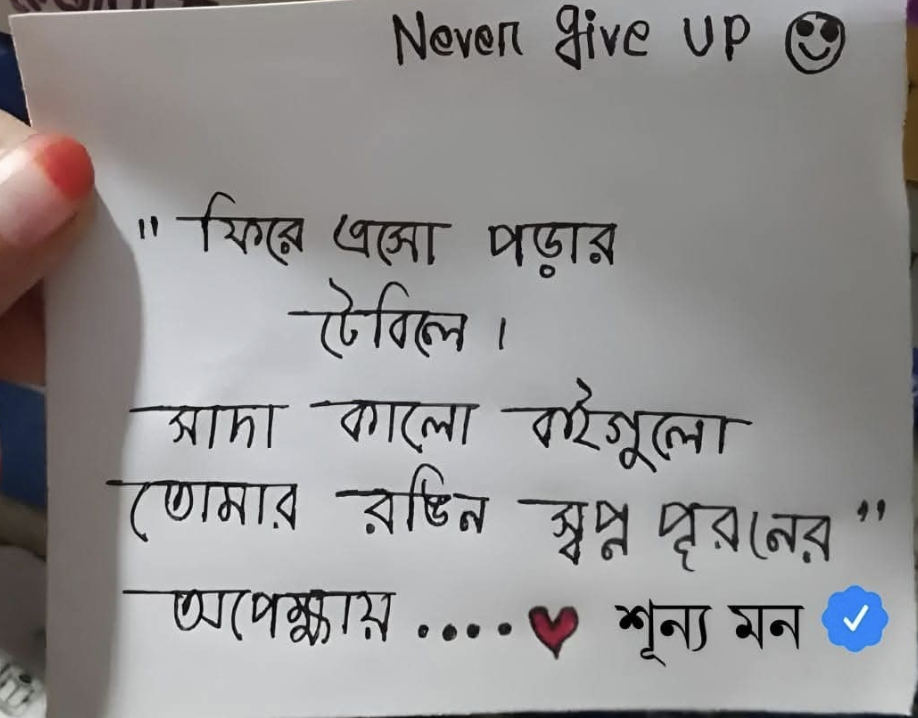 Never give up
" ফিরে এসো পড়ার
টেবিলে ।
সাদা কালো বইগুলো
তোমার রঙিন স্বপ্ন পূরনের "
অপেক্ষায় .... শূন্য মন